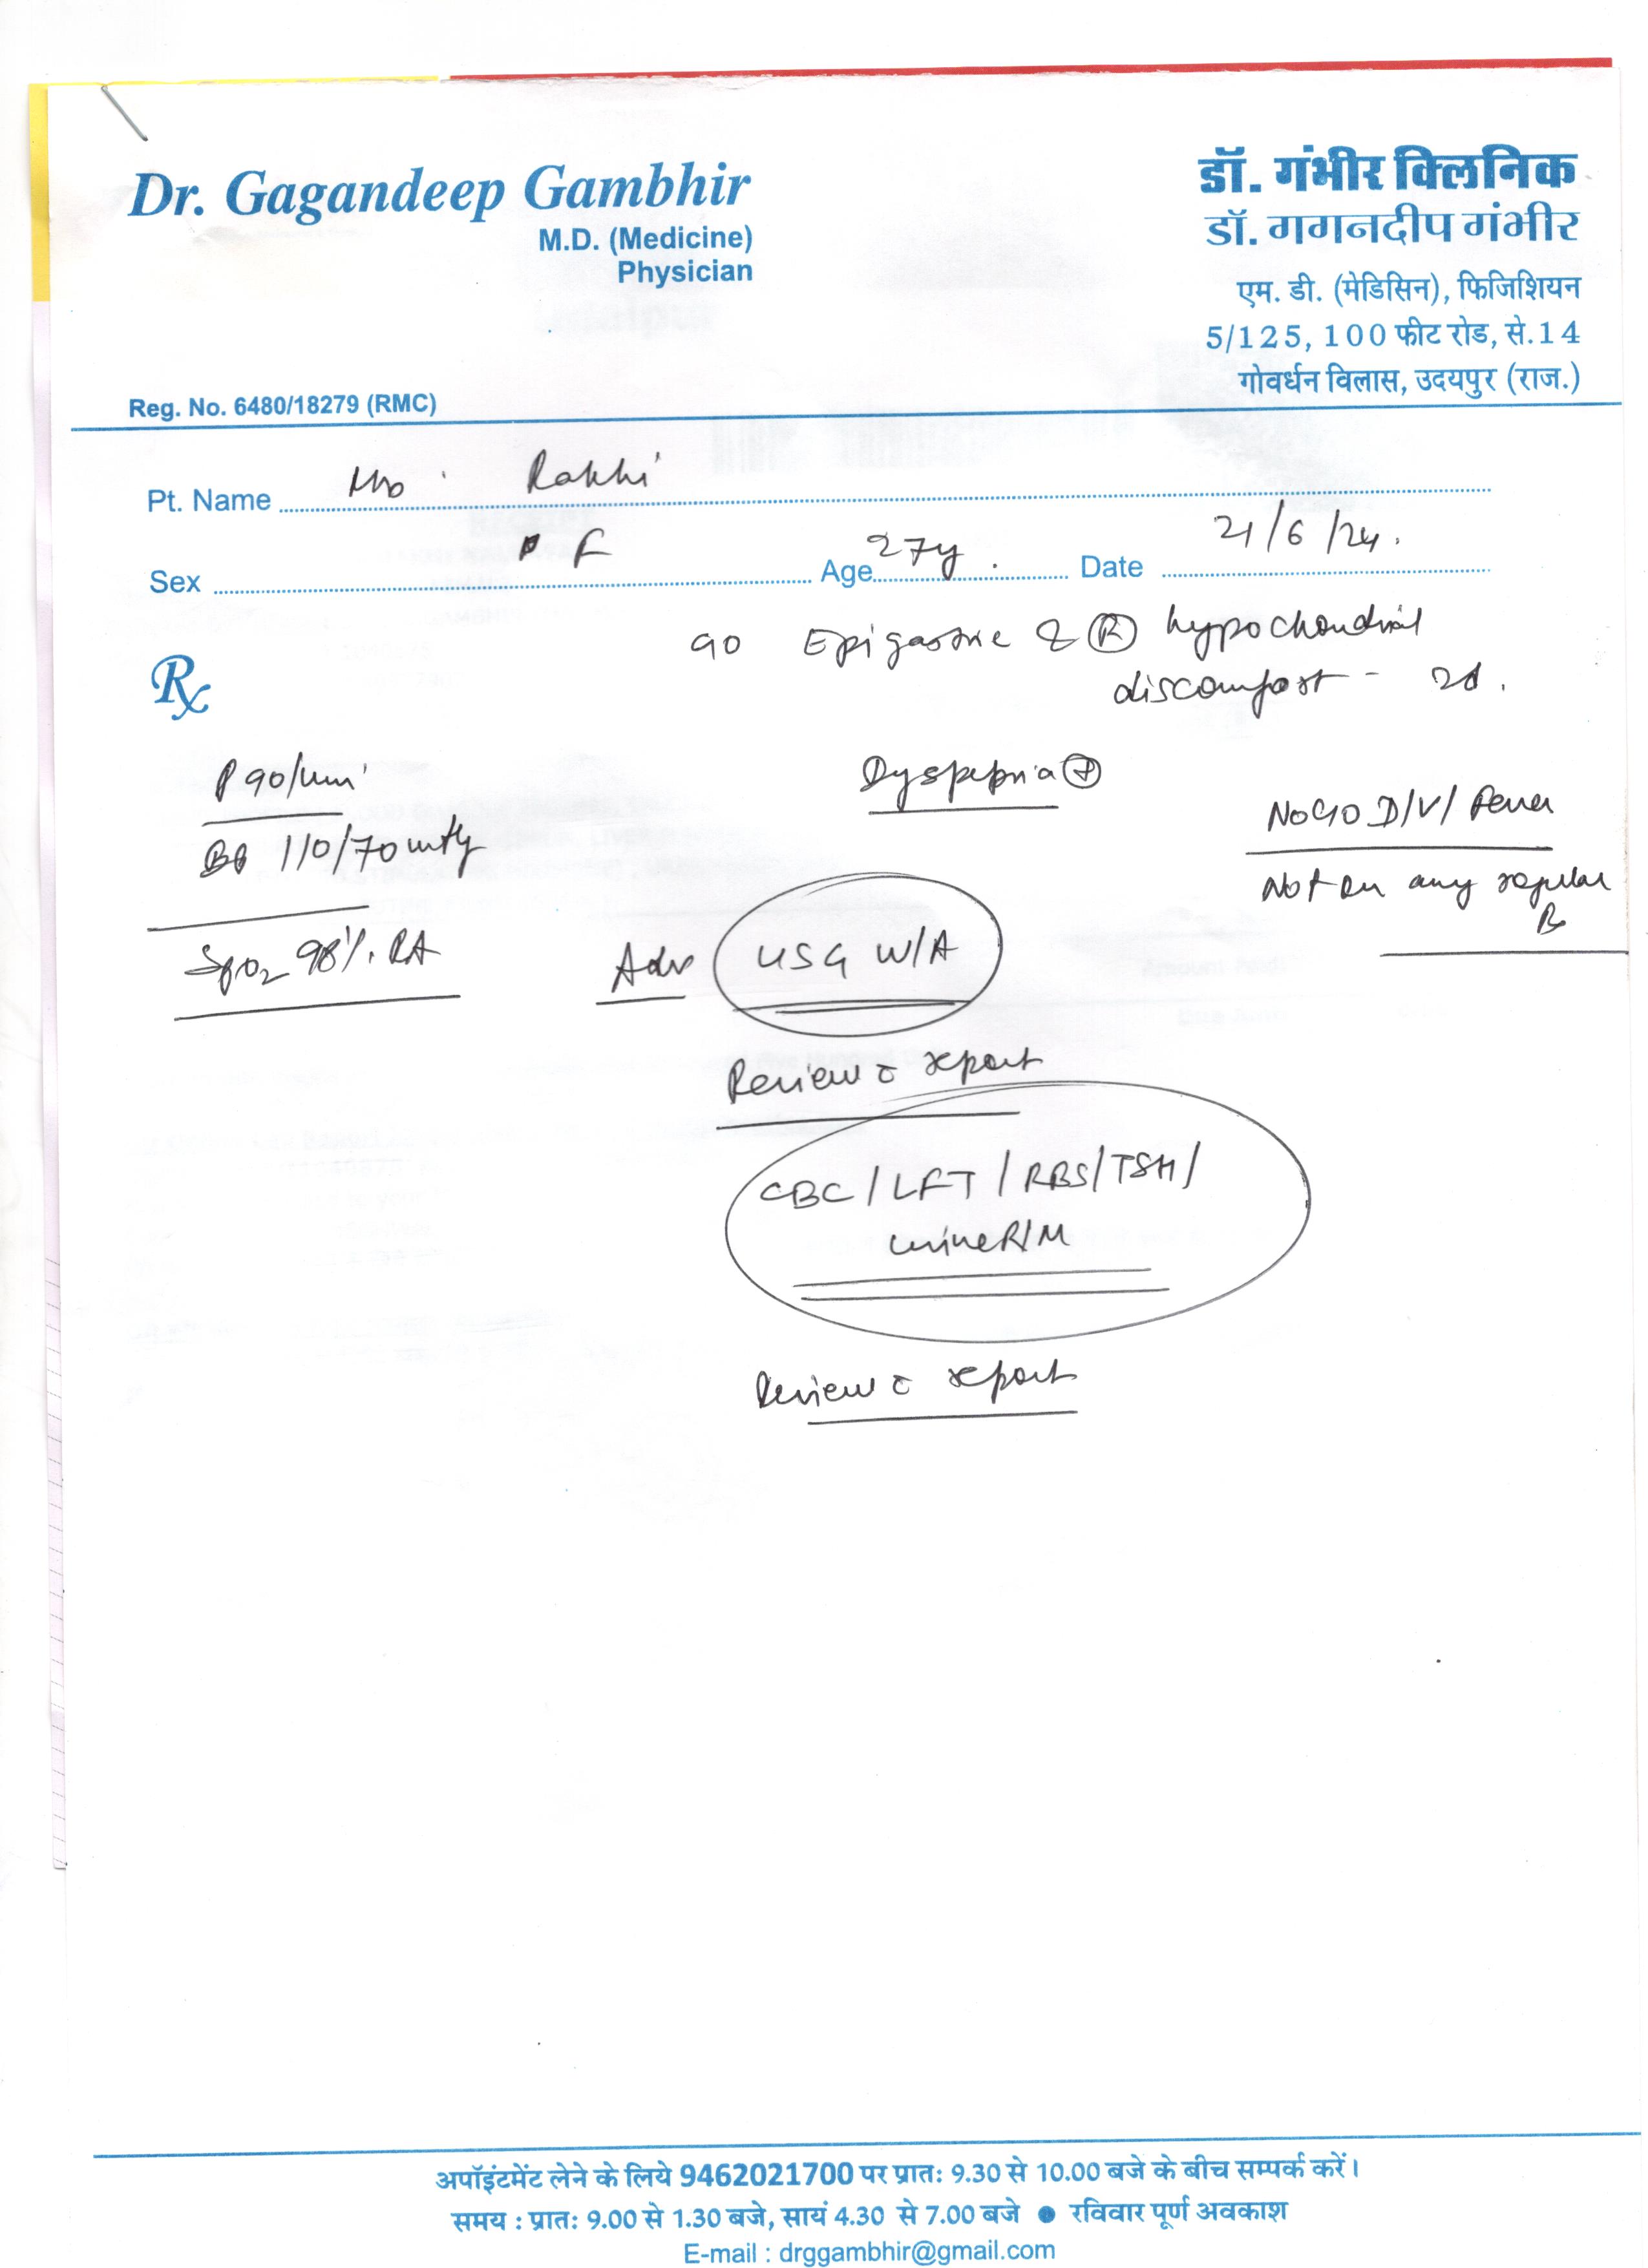 Dr. Gagandeep Gambhir
M.D. (Medicine)
Physician
Reg. No. 6480/18279 (RMC)
डॉ. गंभीर क्लिनिक
डॉ. गगनदीप गंभीर
एम. डी. (मेडिसिन), फिजिशियन
5/125, 100 फीट रोड, से.14
गोवर्धन विलास, उदयपुर (राज.)
Pt. Name Rakhi
Sex F Age 27y. Date 21/6/24.
Rx
c/o Epigastric & (R) hypochondrial
discomfort - 2d.
P 90/min
BP 110/70 mmHg
SpO2 98% RA
Dyspepsia (+)
No c/o D/V/Fever
Not on any regular
Rx
Adv USG W/A
Review c̄ report
CBC / LFT / RBS / TSH /
urine R/M
Review c̄ report
अपॉइंटमेंट लेने के लिये 9462021700 पर प्रातः 9.30 से 10.00 बजे के बीच सम्पर्क करें।
समय : प्रातः 9.00 से 1.30 बजे, सायं 4.30 से 7.00 बजे ● रविवार पूर्ण अवकाश
E-mail : drggambhir@gmail.com